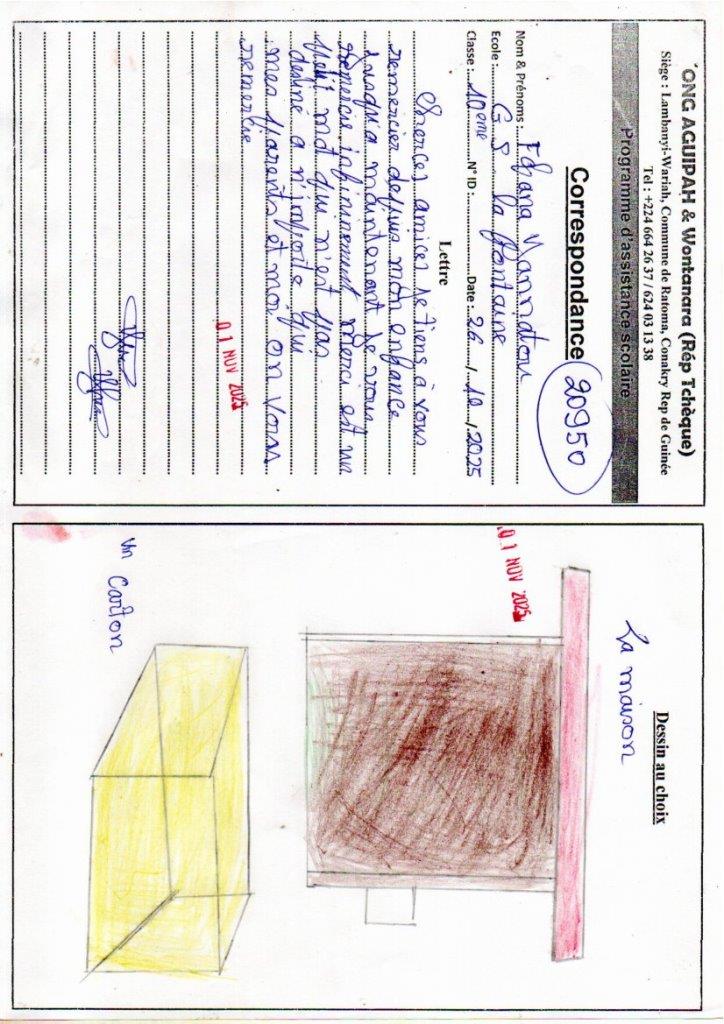 ONG AGUIPAH & Wontanara (Rép Tchèque)
Siège : Lambanyi-Wariah, Commune de Ratoma, Conakry Rep de Guinée
Tel : +224 664 26 37 / 624 03 13 38
Programme d'assistance scolaire
Correspondance
20950
Nom & Prénoms : Fofana Mannatou
Ecole : G S la fontaine
Classe : 10eme N° ID : Date : 26 / 10 / 2025
Lettre
Cher(e) ami(e) je tiens à vous
remercier depuis mon enfance
jusqu'a maintenant je vous
remercie infiniment merci est un
petit mot qui n'est pas
destiné a n'importe qui
mes parents et moi on vous
remercie
01 NOV 2025
Dessin au choix
La maison
01 NOV 2025
un carton